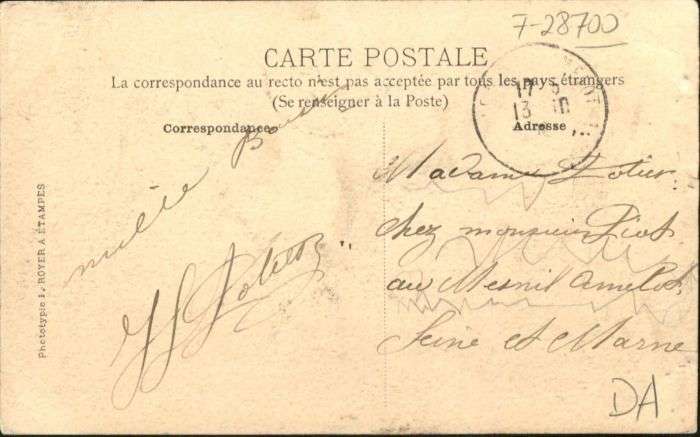 7-28700
CARTE POSTALE
La correspondance au recto n'est pas acceptée par tous les pays étrangers
(Se renseigner à la Poste)
Correspondance
Adresse
17
13
mille Baisers
Madame Potier
chez monsieur Piot
au Mesnil Amelot
Seine et Marne
Phototypie L. ROYER A ÉTAMPES
DA